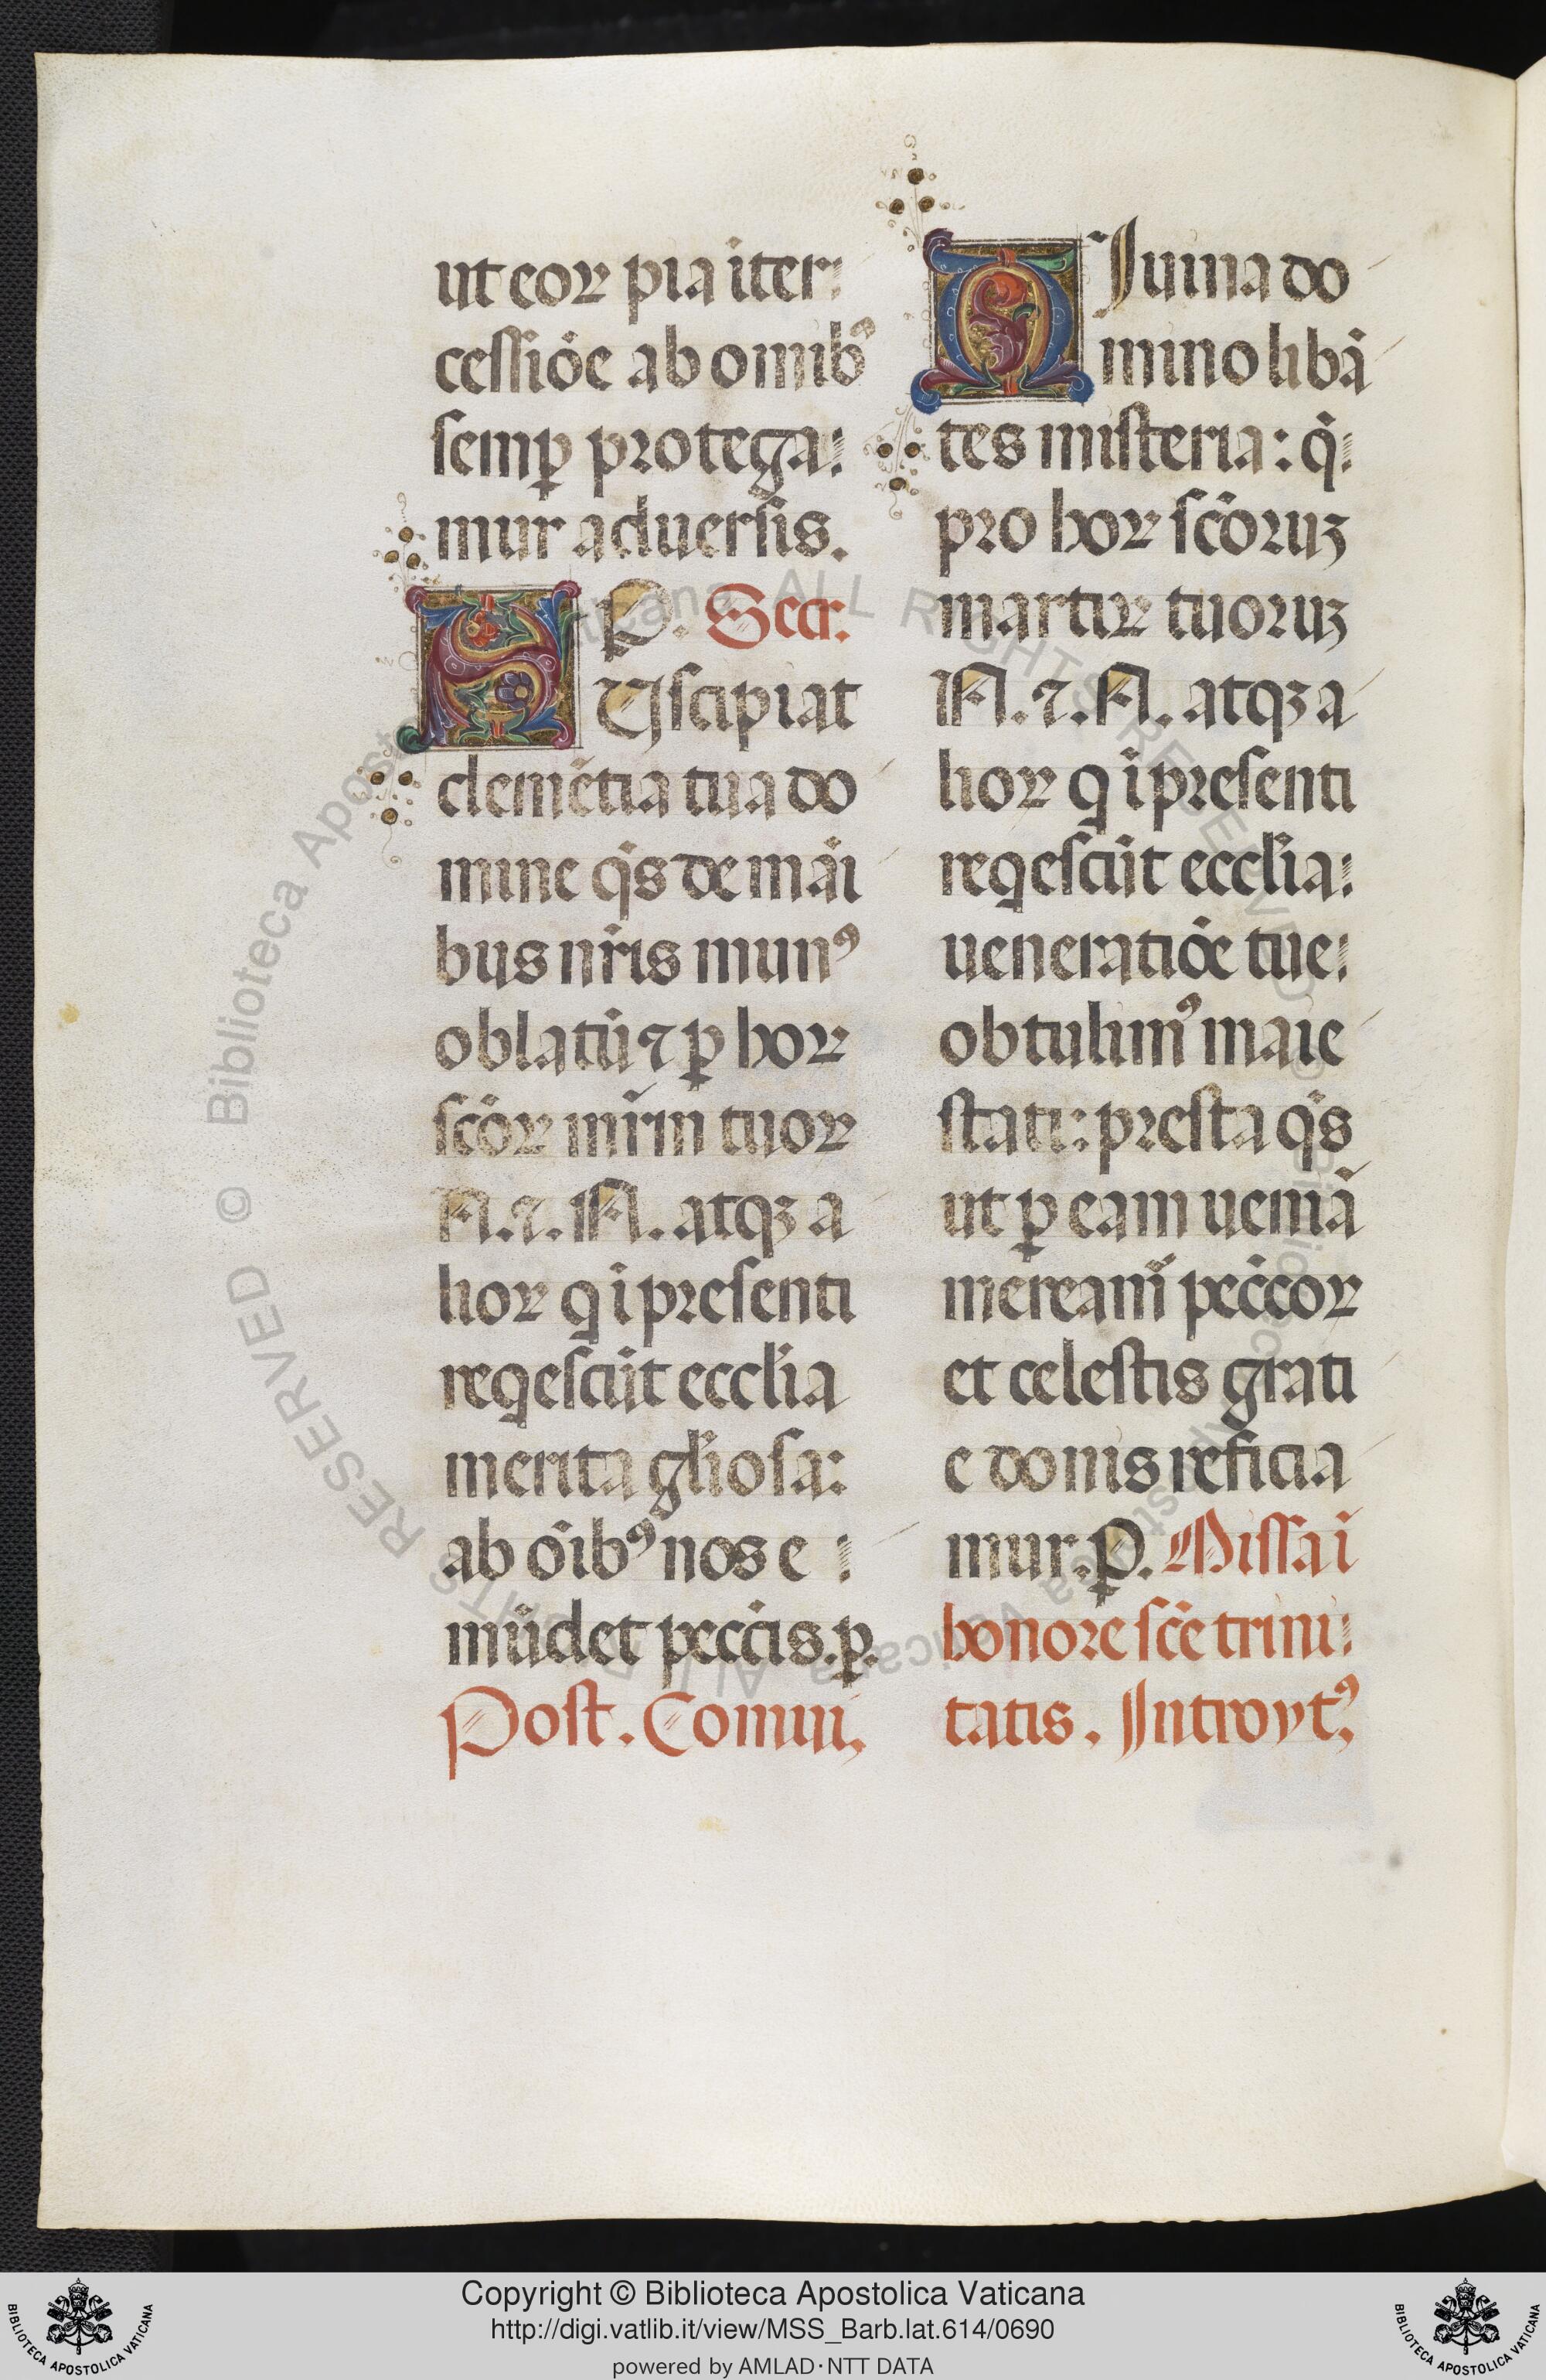 ut eoꝝ pia iter
cessiōe ab omnibꝰ
semꝑ protega
mur aduersis.
P. Secr.
SUscipiat
clemētia tua do
mine qs̄ de māi
bus nr̄is munꝰ
oblatū ⁊ ꝑ hoꝝ
scō⁠ꝝ mr̄m tuoꝝ
N. ⁊. N. atqꝫ a
lioꝝ q ī presenti
reqescūt ecclīa
merita glīosa:
ab oībꝰ nos e
mūdet pecc̄is. ꝑ.
Post. Comuni.
DIuina do
mino libā
tes misteria: q̄
pro hoꝝ scōruꝫ
martiꝝ tuoruꝫ
N. ⁊. N. atqꝫ a
lioꝝ q ī presenti
reqescūt ecclīa
ueneratiōe tue
obtulimꝰ maie
stati: presta qs̄
ut ꝑ eam ueniā
meream̄ pecc̄oꝝ
et celestis grati
e donis reficia
mur. P. Missa ī
honore scē trini
tatis. Introytꝰ
© Biblioteca Apostolica Vaticana ALL RIGHTS RESERVED
Copyright © Biblioteca Apostolica Vaticana
http://digi.vatlib.it/view/MSS_Barb.lat.614/0690
powered by AMLAD·NTT DATA
BIBLIOTECA APOSTOLICA VATICANA
BIBLIOTECA APOSTOLICA VATICANA